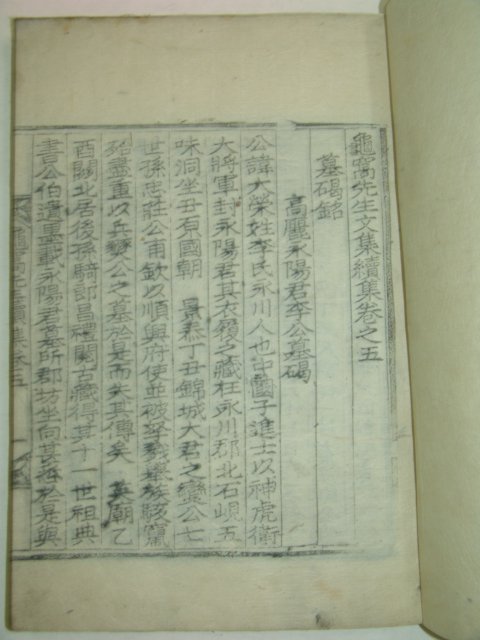 龜窩先生文集續集卷之五
墓碣銘
高麗永陽君李公墓碣
公諱大榮姓李氏永川人也中國子進士以神虎衛
大將軍封永陽君其衣履之藏在永川郡北石峴五
味洞坐丑原國朝 景泰丁丑錦城大君之變公七
世孫忠莊公甫欽以順興府使並被
殆盡重以兵燹公之墓於是而失其傳矣 英廟乙
酉關北居後孫騎郎昌禮閱古藏得其十一世祖典
書公伯遺墨載永陽君墓所郡坊坐向甚於是與